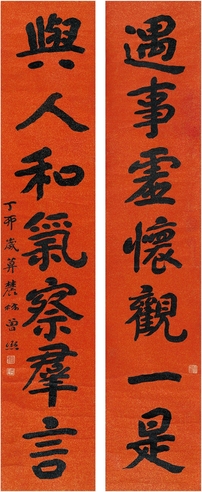 遇事虛懷觀一是
與人和氣察羣言
丁卯歲莫農髯曾熙